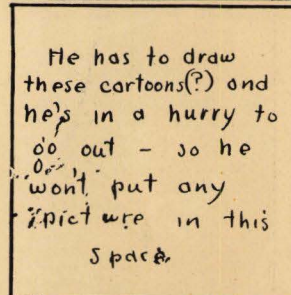 He has to draw
these cartoons(?) and
he's in a hurry to
go out - so he
won't put any
picture in this
space.